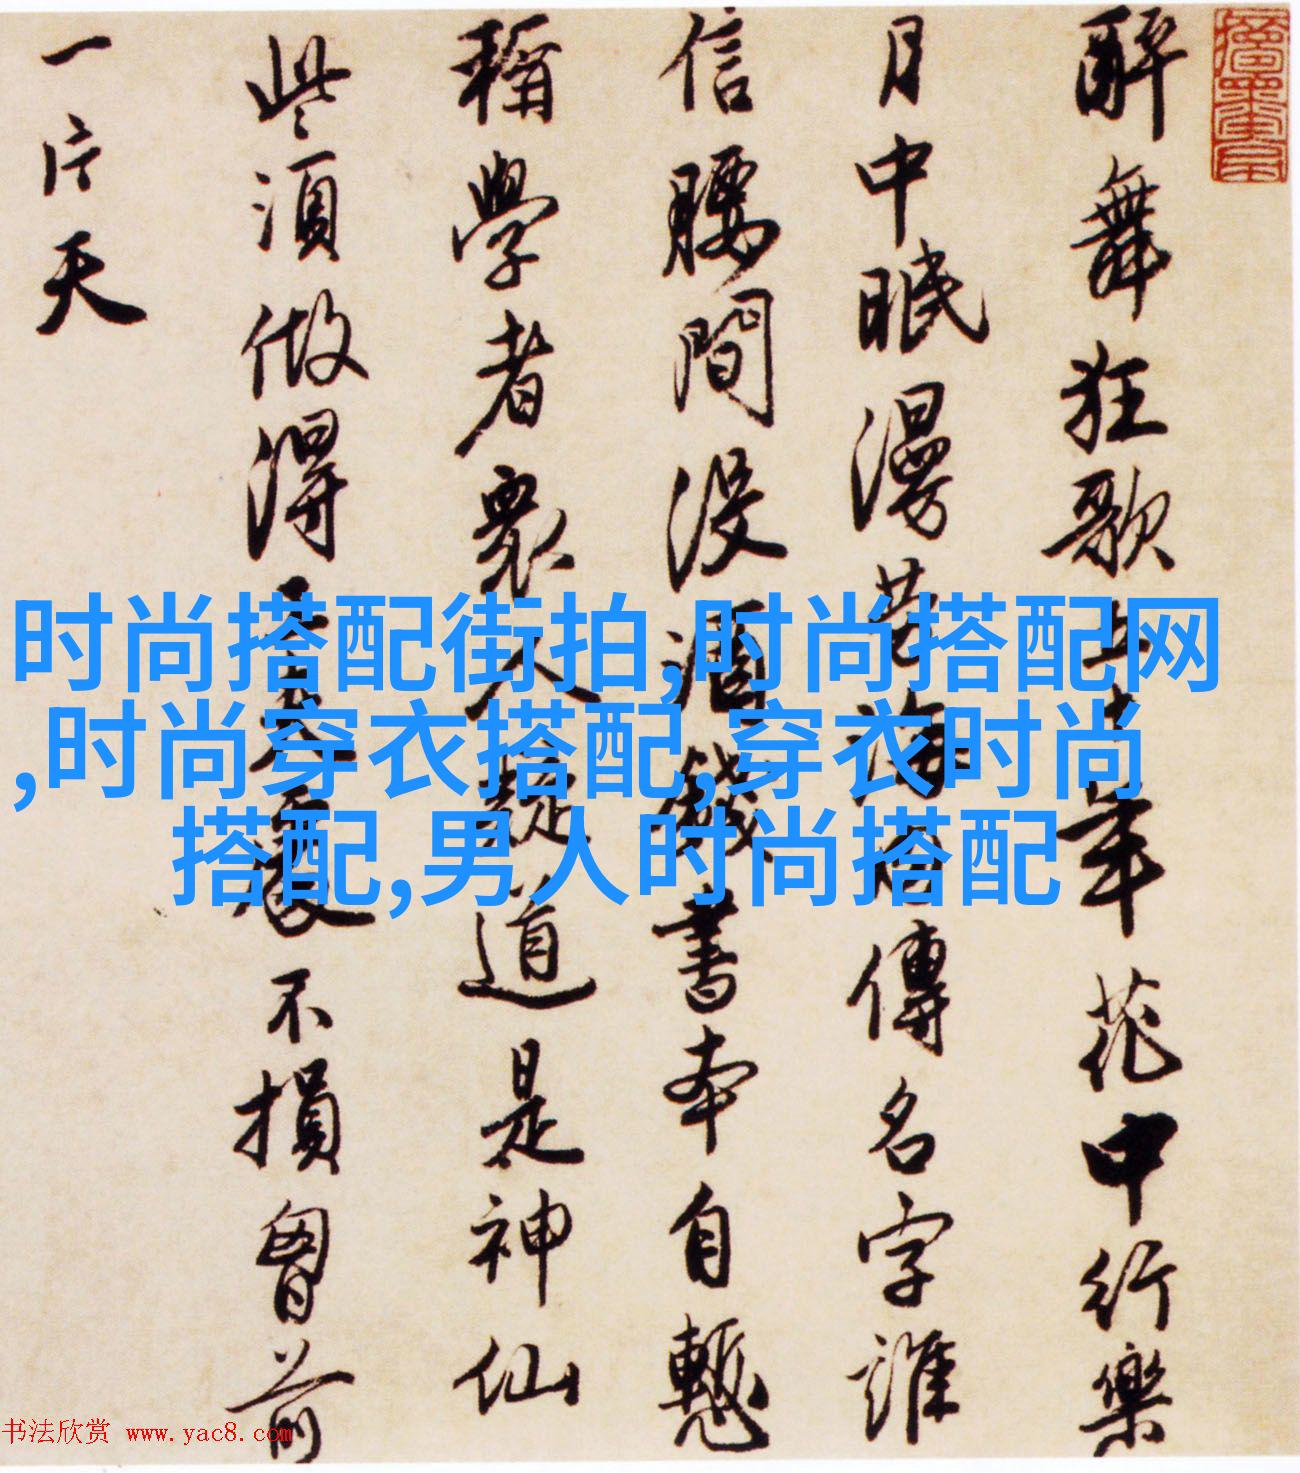 醉舞狂歌五十年花中行樂
月中眠漫勞海內傳名字誰
信腰間沒酒錢書本自慙
稱學者衆人疑道是神仙
些須做得工夫處不損胷前
一片天
时尚搭配街拍,时尚搭配网
,时尚穿衣搭配,穿衣时尚
搭配,男人时尚搭配
书法欣赏 www.yac8.com